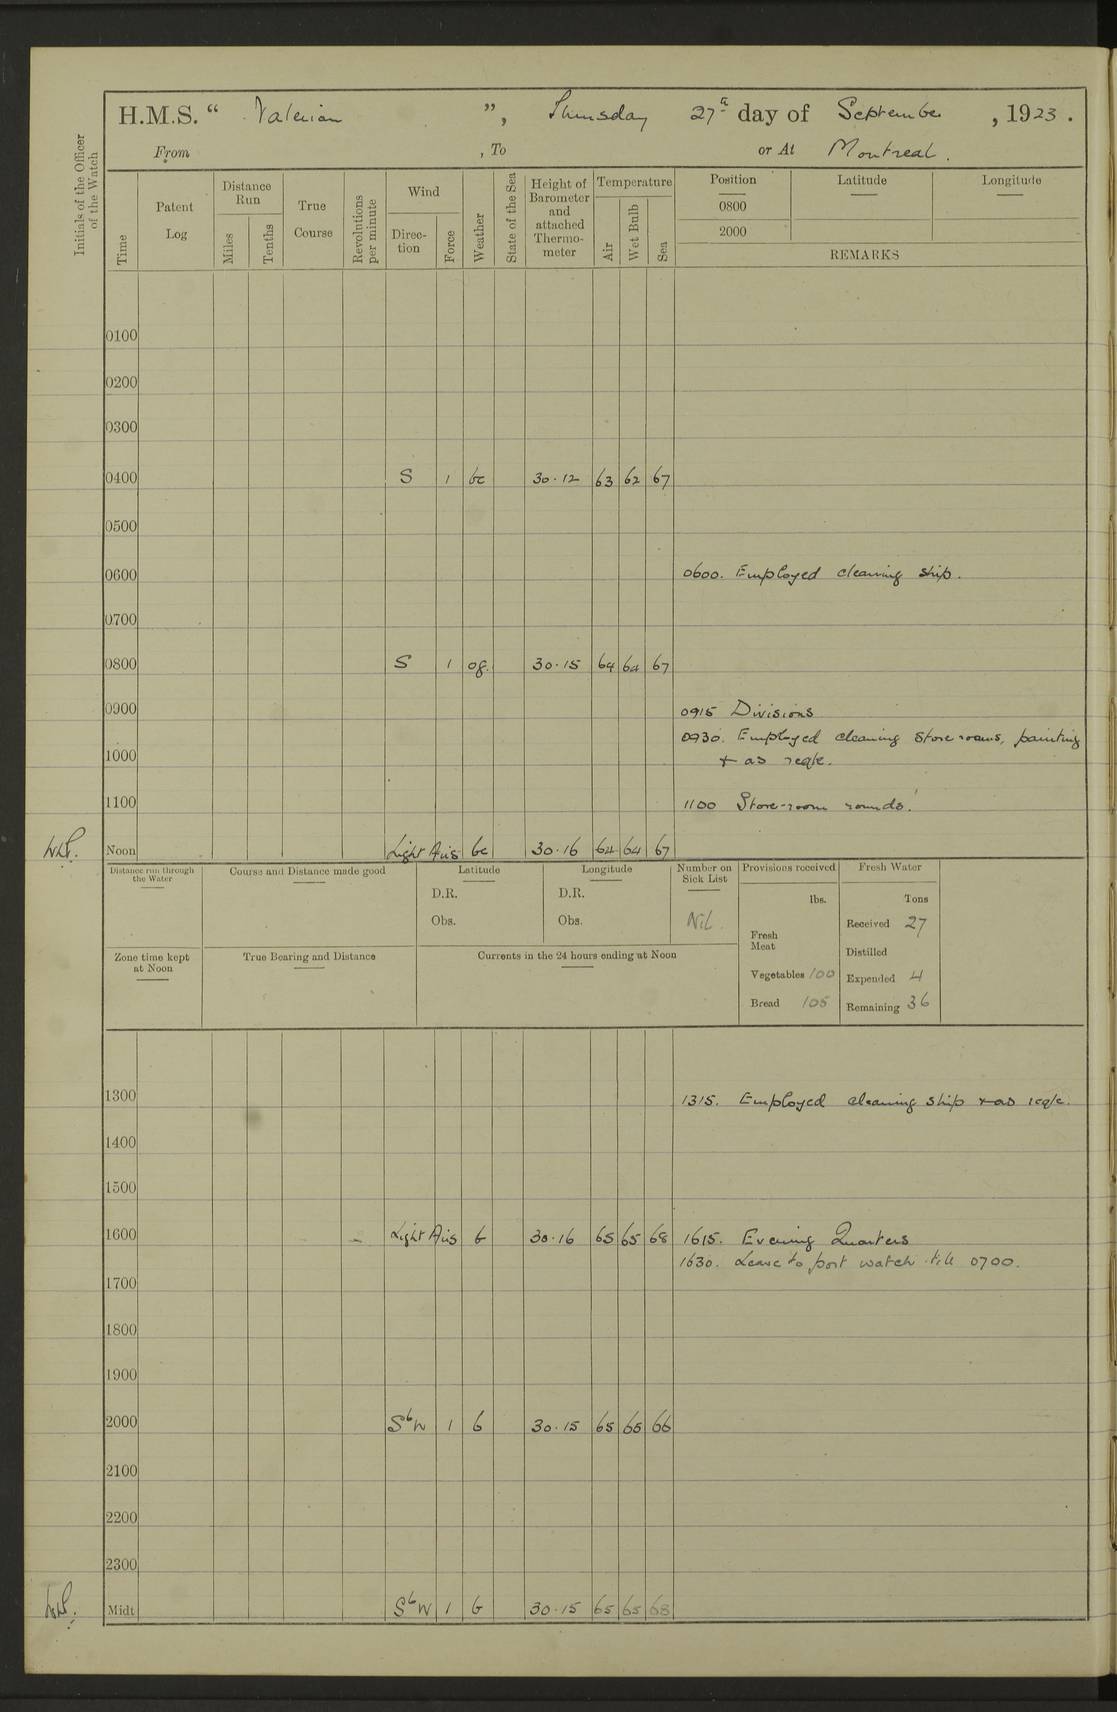 H.M.S. “ Valerian ”, Thursday 27th day of September, 1923.
From , To or At Montreal.
Initials of the Officer of the Watch
Time
Patent Log
Distance Run
Miles
Tenths
True Course
Revolutions per minute
Wind
Direction
Force
Weather
State of the Sea
Height of Barometer and attached Thermometer
Temperature
Air
Wet Bulb
Sea
Position
Latitude
Longitude
0800
2000
REMARKS
0100
0200
0300
0400 S 1 bc 30.12 63 62 67
0500
0600 0600. Employed cleaning ship.
0700
0800 S 1 og. 30.15 64 64 67
0900 0915 Divisions
0930. Employed cleaning store rooms, painting
1000 + as reqte.
1100 1100 Store-room rounds.
Noon Light Airs bc 30.16 64 64 67
Distance run through the Water
Course and Distance made good
Latitude
D.R.
Obs.
Longitude
D.R.
Obs.
Number on Sick List
Nil.
Provisions received
lbs.
Fresh Meat
Vegetables 100
Bread 105
Fresh Water
Tons
Received 27
Distilled
Expended 4
Remaining 36
Zone time kept at Noon
True Bearing and Distance
Currents in the 24 hours ending at Noon
1300 1315. Employed cleaning ship + as reqte.
1400
1500
1600 Light Airs b 30.16 65 65 68 1615. Evening Quarters
1630. Leave to port watch till 0700.
1700
1800
1900
2000 SbW 1 b 30.15 65 65 66
2100
2200
2300
Midt SbW 1 b 30.15 65 65 68